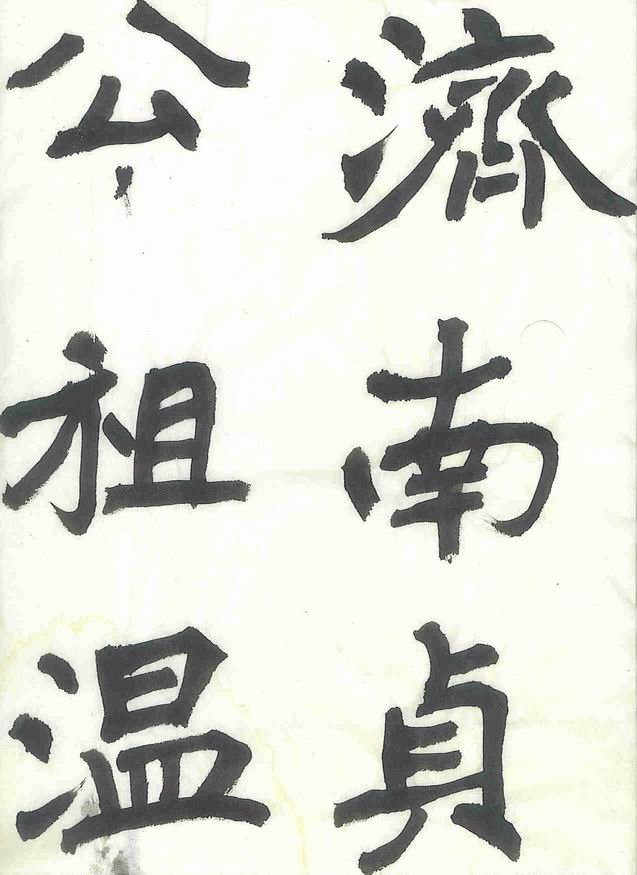 濟南貞
公祖温